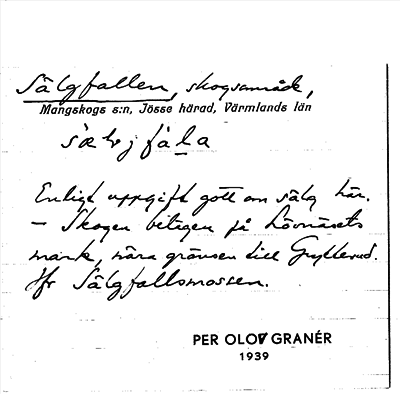 Sälgfallen, skogsområde,
Mangskogs s:n, Jösse härad, Värmlands län
sælvjfåla
Enligt uppgift gott om sälg här.
– Skogen belägen på Lövnäsets
mark, nära gränsen till Grytterud.
Jfr Sälgfallsmossen.
PER OLOV GRANÉR
1939